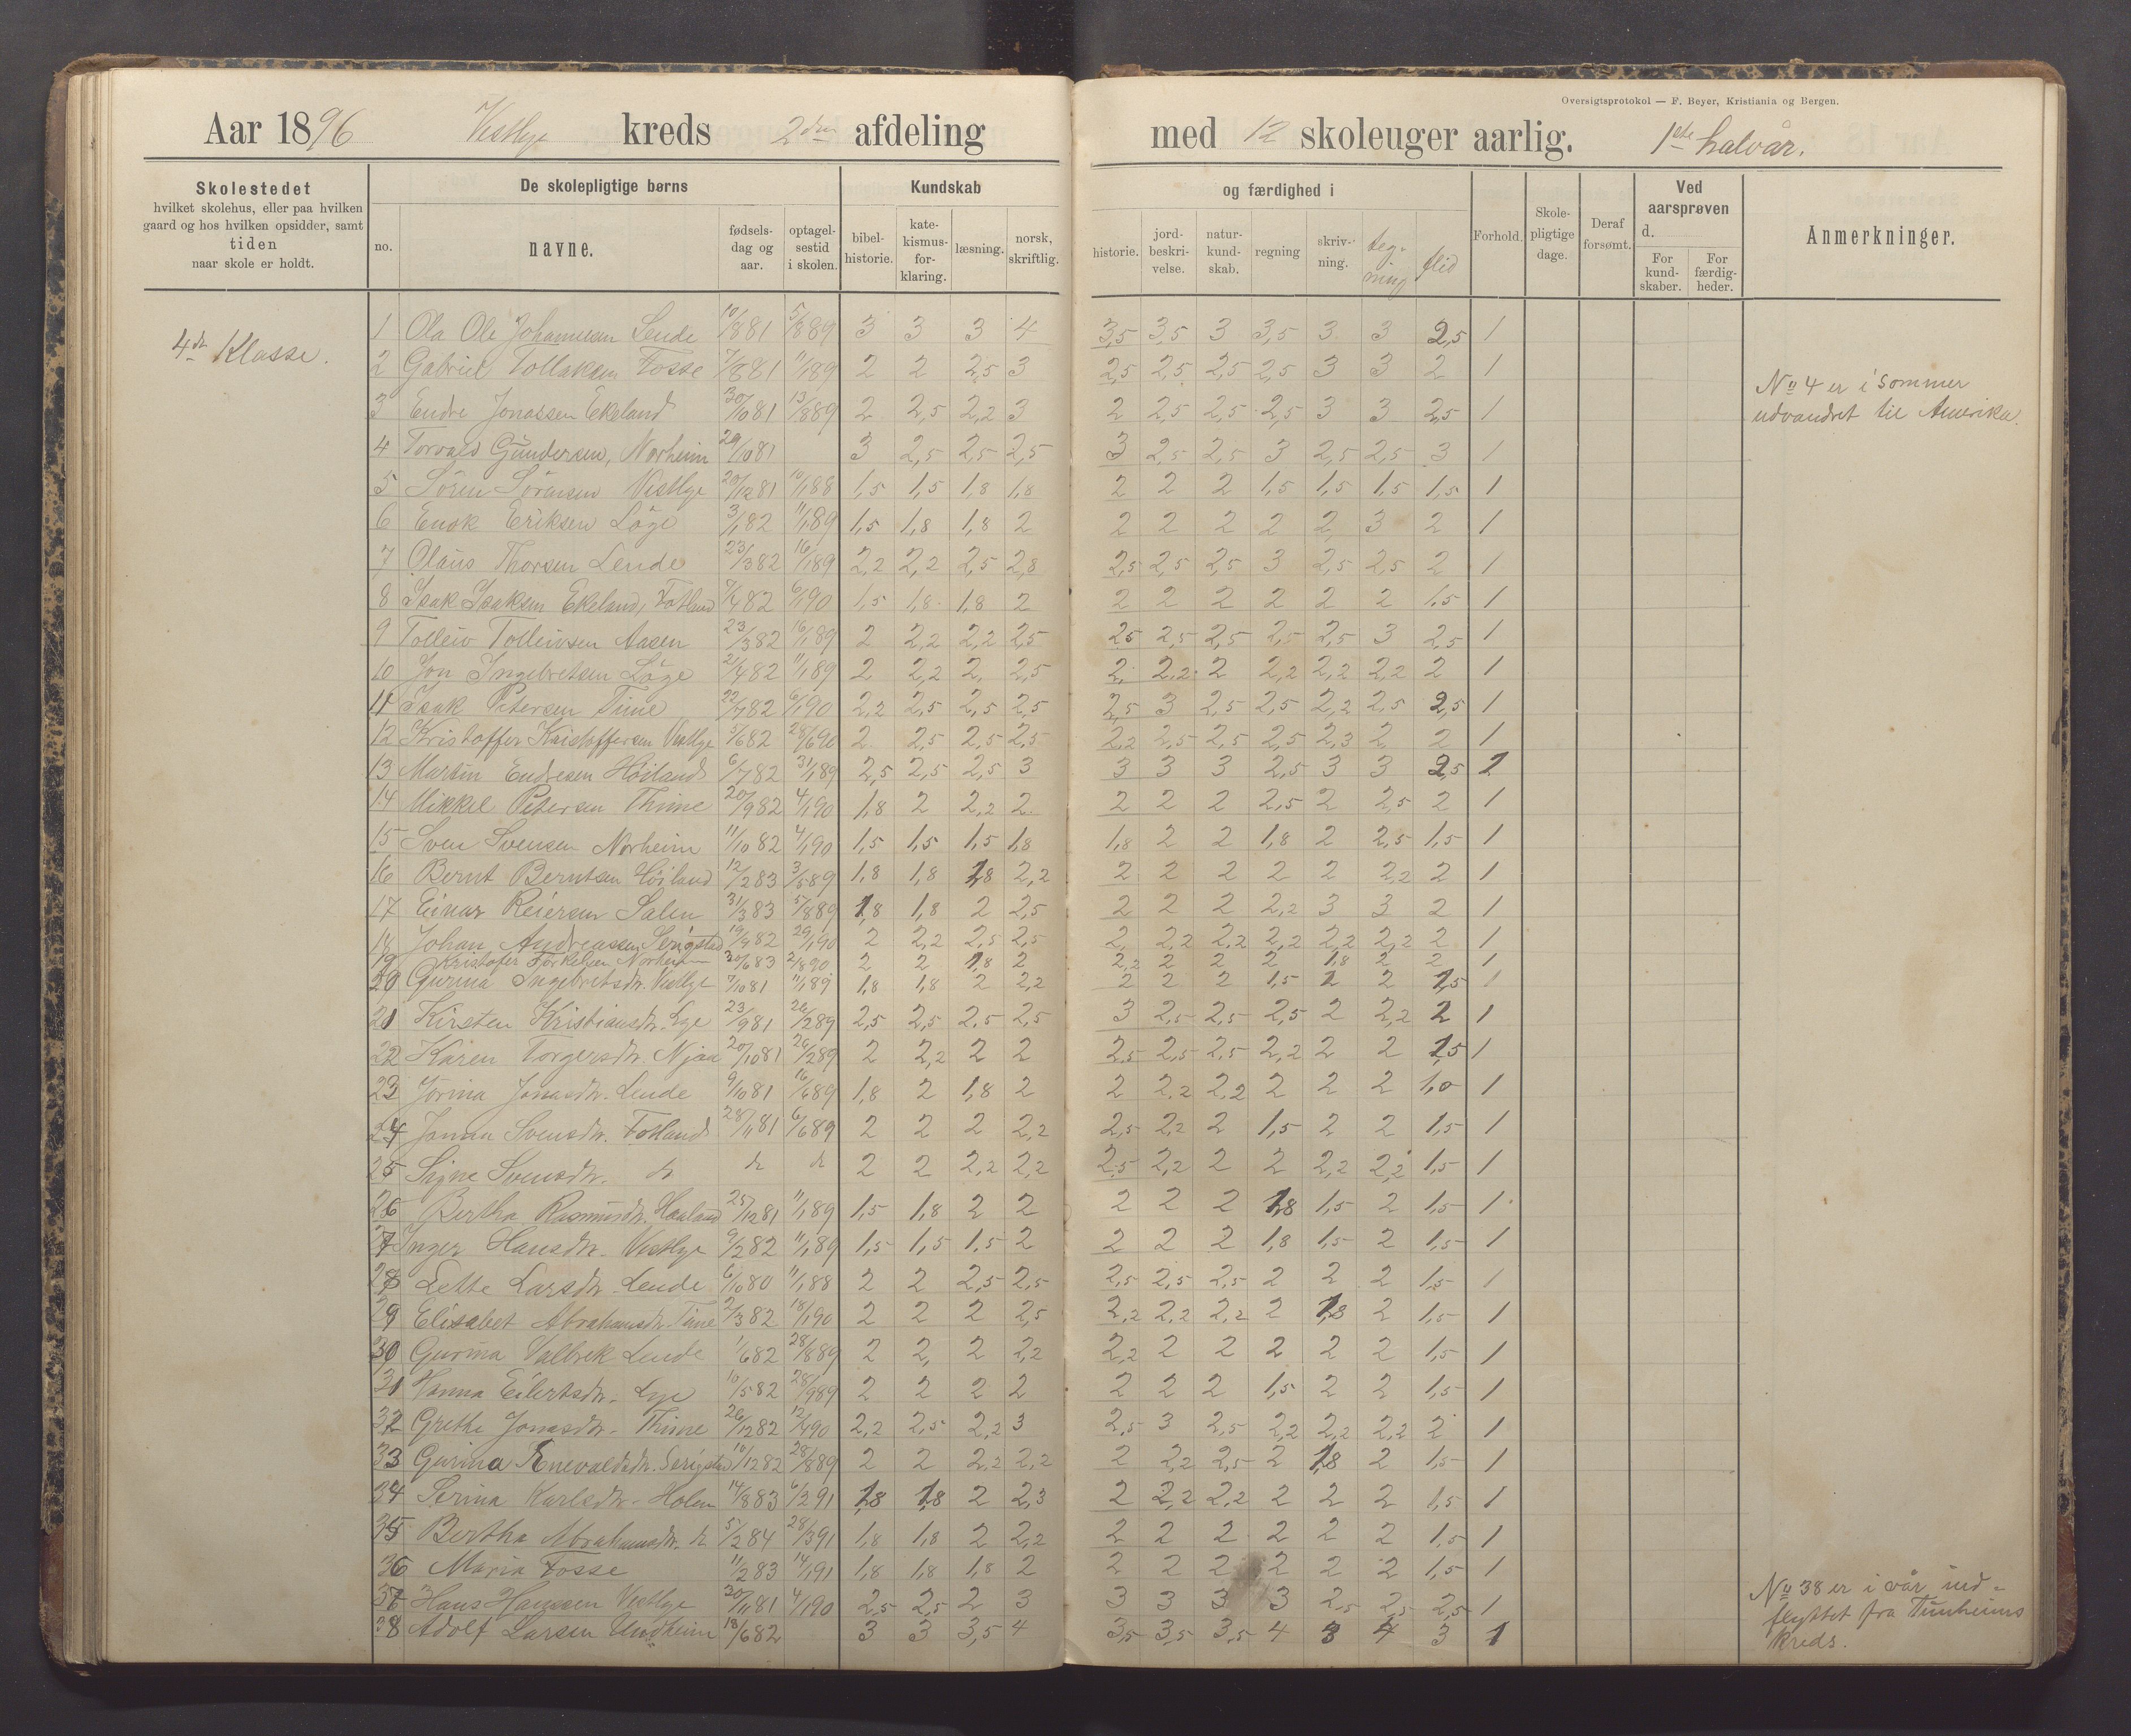 Oversigtsprotokol — F. Beyer, Kristiania og Bergen.
Aar 1896 Vestlye kreds 2den afdeling med 12 skoleuger aarlig. 1ste halvår.
Skolestedet
hvilket skolehus, eller paa hvilken
gaard og hos hvilken opsidder, samt
tiden
naar skole er holdt.
De skolepligtige børns
no. navne. fødsels-dag og aar. optagel-sestid i skolen.
Kundskab og færdighed i
bibel-historie. kate-kismus-for-klaring. læsning. norsk, skriftlig. historie. jord-beskri-velse. natur-kund-skab. regning skriv-ning. teg-ning flid
Forhold. Skole-pligtige dage. Deraf forsømt.
Ved aarsprøven d.
For kund-skaber. For færdig-heder.
Anmerkninger.
4de Klasse.
1 Ola Ole Johannesen Lende 10/8 81 5/8 89 3 3 3 4 3,5 3,5 3 3,5 3 3 2,5 1
2 Gabriel Tollaksen Fosse 7/8 81 11/1 89 2 2 2,5 3 2,5 2,5 2,5 2,5 3 3 2 1
3 Endre Jonassen Ekeland 30/10 81 13/8 89 2 2,5 2,2 3 2 2,5 2,5 2,5 3 3 2,5 1
4 Torvald Gundersen, Norheim 29/10 81 3 2,5 2,5 2,5 3 2,5 2,5 3 2,5 2,5 3 1
5 Sören Sörensen Vestlye 20/12 81 10/1 88 1,5 1,5 1,8 1,8 2 2 2 1,5 1,5 1,5 1,5 1
6 Enok Eriksen Löge 3/1 82 11/1 89 1,5 1,8 1,8 2 2 2 2 2 2 3 2 1
7 Olaus Thorsen Lende 23/3 82 16/1 89 2,2 2,2 2,5 2,8 2,5 2,5 2,5 3 2,5 2,5 2 1
8 Isak Isaksen Ekeland, Fotland 7/4 82 6/1 90 1,5 1,8 1,8 2 2 2 2 2 2 2 1,5 1
9 Tolleiv Tolleivsen Aasen 23/3 82 16/1 89 2 2,2 2,2 2,5 2,5 2,5 2,5 2,5 2,5 3 2,5 1
10 Jon Ingebretsen Löge 21/4 82 11/1 89 2 2,2 2 2,5 2 2,2 2 2,2 2,2 2,2 2 1
11 Isak Petersen Time 22/4 82 6/1 90 2,2 2,5 2,5 2,5 2,5 3 2,5 2,5 2,2 2,5 2,5 1
12 Kristoffer Kristoffersen Vestlye 5/6 82 28/6 90 2 2,5 2,5 2,5 2,2 2,5 2,5 2,5 2,3 2 2 1
13 Martin Endresen Höiland 6/7 82 31/1 89 2,5 2,5 2,5 3 3 3 3 2,5 3 3 2,5
14 Mikkel Petersen Thime 20/9 82 4/1 90 1,8 2 2,2 2 2 2 2 2,5 2 2,5 2 1
15 Sven Svensen Norheim 11/10 82 4/1 90 1,5 1,5 1,5 1,8 1,8 2 2 1,8 2 2,5 1,5 1
16 Bernt Berntsen Höiland 12/2 83 3/5 89 1,8 1,8 1,8 2,2 2 2 2 2 2 2,2 2 1
17 Einar Reiersen Salen 31/3 83 5/8 89 1,8 1,8 2 2,5 2 2 2 2,2 3 3 2 1
18 Johan Andreassen Serigstad 19/4 82 29/1 90 2 2,2 2,5 2,5 2 2,2 2,2 2,2 2,2 2,2 2 1
19 Kristofer Torkelsen Norheim 30/6 83 2/8 90 2 2 1,8 2 2,2 2 2 2 1,8 2 2 1
20 Gurina Ingebretsdtr. Vestlye 7/10 81 11/1 89 1,8 1,8 2 2,2 2 2 2 1,5 2 2 1,5 1
21 Kirsten Kristiansdtr. Lye 23/9 81 26/2 89 2,5 2,5 2,5 2,5 3 2,5 2,5 2,5 2 2,2 2 1
22 Karen Torgersdtr. Njaa 20/10 81 26/2 89 2 2,2 2 2 2,5 2,5 2,5 2,2 2 2 1,5 1
23 Jorina Jonasdtr. Lende 9/10 81 16/6 89 1,8 2 1,8 2 2 2,2 2,2 2 2 2 1,0 1
24 Janna Svensdtr. Fotland 28/11 81 6/6 89 2 2 2 2,2 2,5 2,2 2 1,5 2 2 1,5 1
25 Signe Svensdtr. 2 2 2,2 2,2 2,5 2,2 2 2 2,2 2,2 1,5 1
26 Bertha Rasmusdtr. Haaland 25/12 81 11/1 89 1,5 1,8 2 2 2 2 2 1,8 1,5 2 1,5 1
27 Inger Hansdtr. Vestlye 9/2 82 11/1 89 1,5 1,5 1,5 2 2 2 2 1,8 1,5 2 1,5 1
28 Lette Larsdtr. Lende 6/10 80 11/1 88 2 2 2,5 2,5 2,5 2,5 2,5 2 2 2 1,5 1
29 Elisabet Abrahamsdtr. Time 2/3 82 18/1 90 2 2 2 2,5 2,2 2,2 2,2 2 1,8 2 1,5 1
30 Gurina Valbrek Lende 1/6 82 28/8 89 2 2 2 2,2 2,2 2 2 2 2 2 1,5 1
31 Hanna Eilertsdtr. Lye 10/5 82 28/9 89 2 2 2 2 2 2 2 1,5 2 2 1,5 1
32 Grethe Jonasdtr. Thime 26/12 82 12/4 90 2,2 2,5 2,2 3 2,5 3 2,5 2,2 2,2 2,2 2 1
33 Gurina Enevaldsdtr. Serigstad 10/12 82 28/8 89 2 2 2,2 2,2 2 2,2 2,5 2 1,8 2 1,5 1
34 Serina Karlsdtr. Holen 14/8 83 6/2 91 1,8 1,8 2 2,3 2 2,2 2,2 2 2 2 1,5 1
35 Bertha Abrahamsdtr. 5/2 84 28/3 91 1,8 1,8 2 2,2 2 2 2 2 2 2 1,5 1
36 Maria Fosse 11/2 83 14/1 91 1,8 1,8 1,8 2 2 2 2 2 2 2 1,5 1
37 Hans Hanssen Vestlye 30/11 81 4/1 90 2,5 2,5 2 3 3 3 3 3 2,5 2,5 2,5 1
38 Adolf Larsen Undheim 18/6 82 3 3 3,5 4 3,5 3,5 3,5 4 3 4 3 1
No 4 er i sommer
udvandret til Amerika.
No 38 er i vår ind-
flyttet fra Tunheims
kreds.